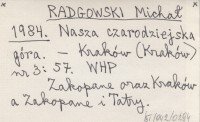 RADGOWSKI Michał
1984. Nasza czarodziejska
góra. – Kraków (Kraków)
nr 3: 57. WHP
Zakopane oraz Kraków
a Zakopane i Tatry.